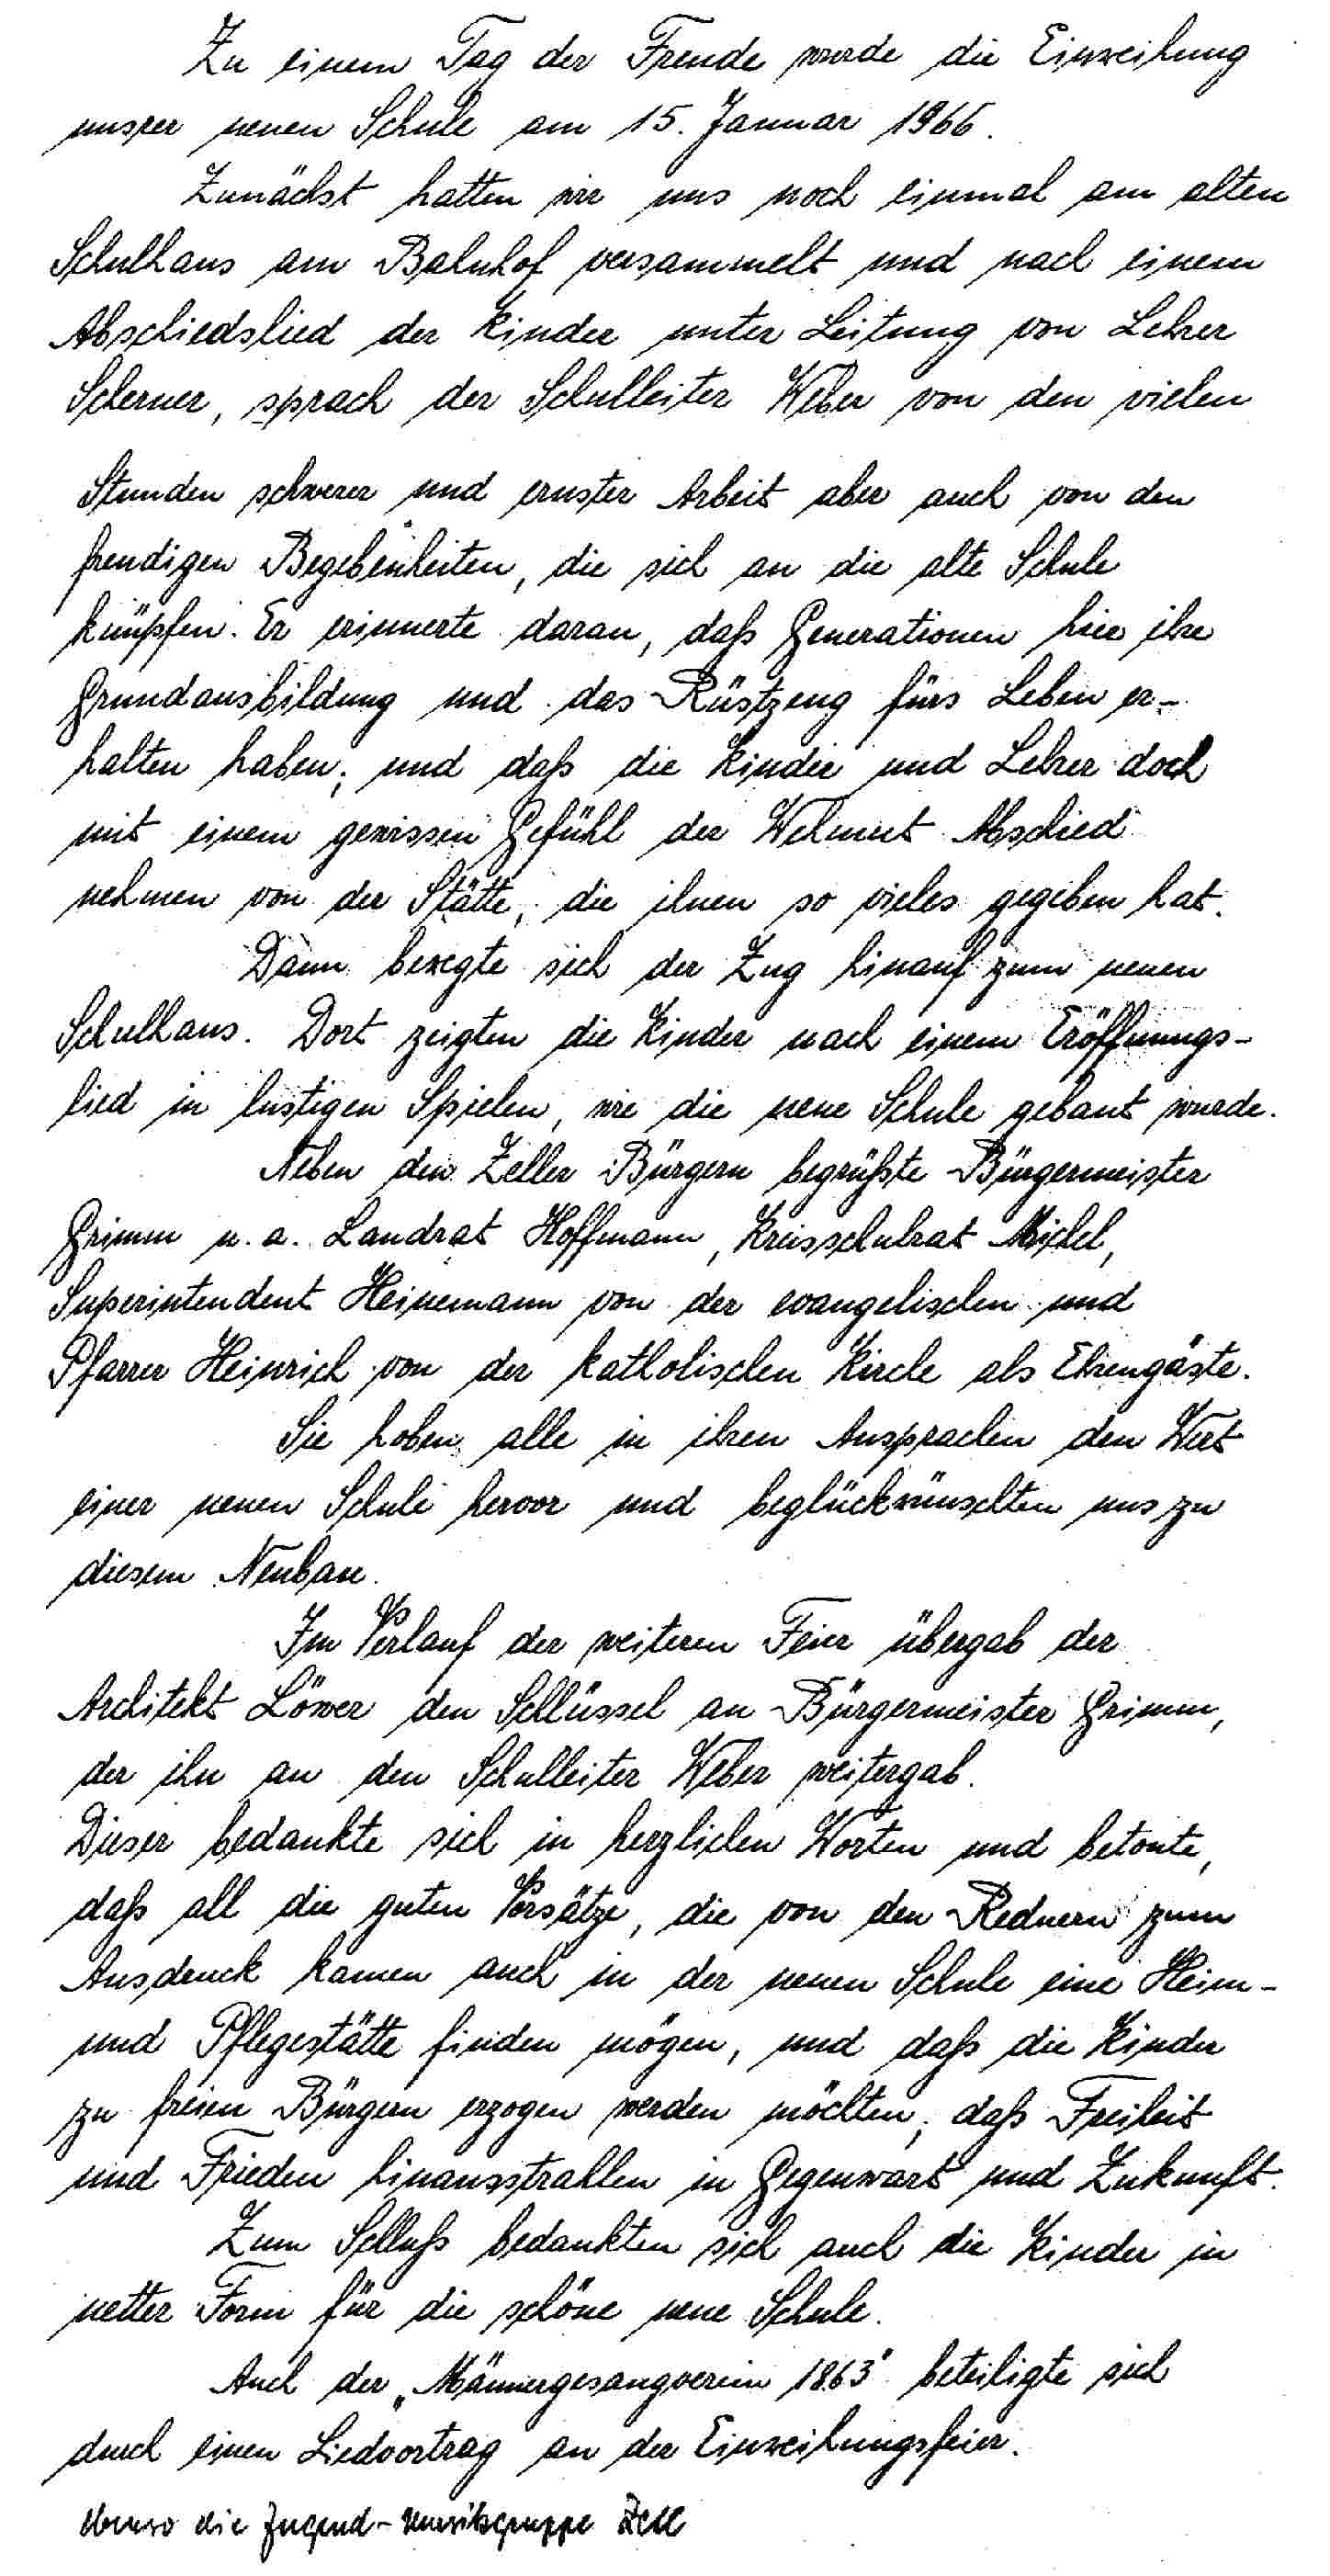 Zu einem Tag der Freude wurde die Einweihung
unsrer neuen Schule am 15. Januar 1966.
Zunächst hatten wir uns noch einmal am alten
Schulhaus am Bahnhof versammelt und nach einem
Abschiedslied der Kinder unter Leitung von Lehrer
Scherner, sprach der Schulleiter Weber von den vielen
Stunden schwerer und ernster Arbeit aber auch von den
freudigen Begebenheiten, die sich an die alte Schule
knüpfen. Er erinnerte daran, daß Generationen hier ihre
Grundausbildung und das Rüstzeug fürs Leben er-
halten haben, und daß die Kinder und Lehrer doch
mit einem gewissen Gefühl der Wehmut Abschied
nehmen von der Stätte, die ihnen so vieles gegeben hat.
Dann bewegte sich der Zug hinauf zum neuen
Schulhaus. Dort zeigten die Kinder nach einem Eröffnungs-
lied in lustigen Spielen, wie die neue Schule gebaut wurde.
Neben den Zeller Bürgern begrüßte Bürgermeister
Grimm u. a. Landrat Hoffmann, Kreisschulrat Michel,
Superintendent Heinemann von der evangelischen und
Pfarrer Heinrich von der katholischen Kirche als Ehrengäste.
Sie hoben alle in ihren Ansprachen den Wert
einer neuen Schule hervor und beglückwünschten uns zu
diesem Neubau.
Im Verlauf der weiteren Feier übergab der
Architekt Löwer den Schlüssel an Bürgermeister Grimm,
der ihn an den Schulleiter Weber weitergab.
Dieser bedankte sich in herzlichen Worten und betonte,
daß all die guten Vorsätze, die von den Rednern zum
Ausdruck kamen auch in der neuen Schule eine Heim-
und Pflegestätte finden mögen, und daß die Kinder
zu freien Bürgern erzogen werden möchten, daß Freiheit
und Frieden hinausstrahlen in Gegenwart und Zukunft.
Zum Schluß bedankten sich auch die Kinder in
netter Form für die schöne neue Schule.
Auch der „Männergesangverein 1863" beteiligte sich
durch einen Liedvortrag an der Einweihungsfeier.
ebenso die Jugend-Musikgruppe Zell